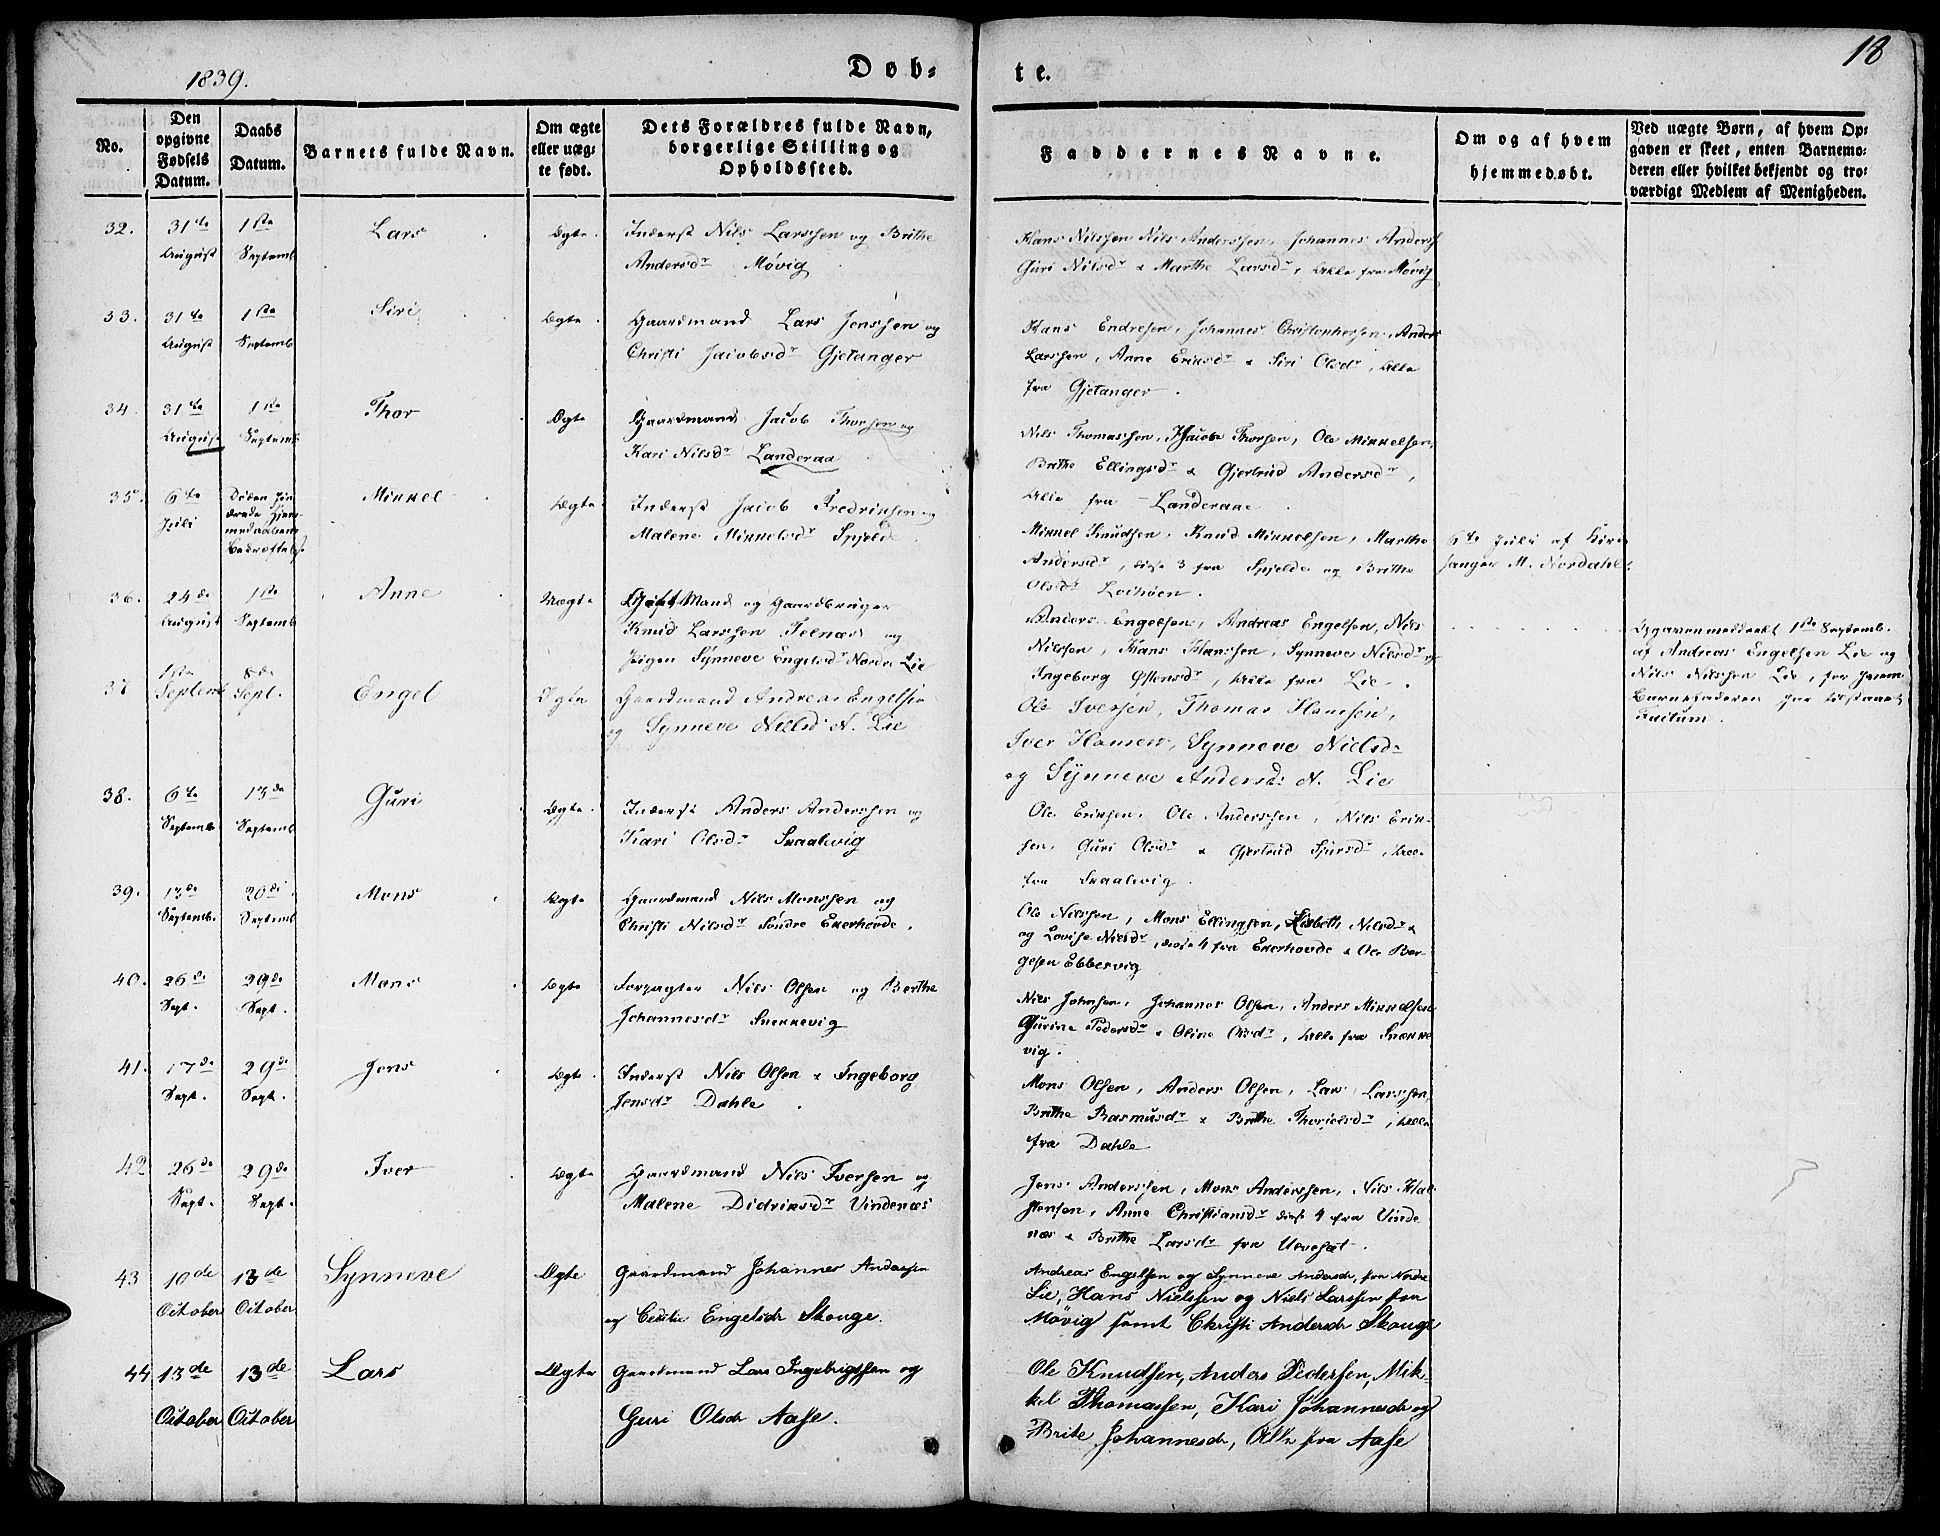 1839.
Döb-
te.
18
No.
Den opgivne Födsels Datum.
Daabs Datum.
Barnets fulde Navn.
Om ægte eller uæg-
te født.
Dets Forældres fulde Navn,
borgerlige Stilling og
Opholdssted.
Faddernes Navne.
Om og af hvem
hjemmedøbt.
Ved uægte Børn, af hvem Op-
gaven er skeet, enten Barnemo-
deren eller hvilket bekjendt og tro-
værdigt Medlem af Menigheden.
32. 31te August 1ste Septemb Lars Ægte. Inderst Nils Larssen og Brithe
Andersdr Møvig
Hans Nilssen Nils Anderssen, Johannes Anders
Guri Nilsdr & Marthe Larsdr, Alle fra Møvig
33. 31te August 1ste Septemb Siri Ægte. Gaardmand Lars Jenssen og
Christi Jacobsdr Gjetanger
Hans Endresen, Johannes Christophersen, Anders
Larssen, Anne Eriksdr & Siri Olsdr, Alle
fra Gjetanger.
34. 31te August 1ste Septemb Thor Ægte Gaardmand Jacob Thorsen og
Kari Nilsdr Landeraa
Nils Thomassen, Jacob Thorsen, Ole Mikkelsen,
Brithe Ellingsdr & Gjertrud Andersdr,
Alle fra Landeraae.
35. 6te Juli Mikkel Ægte. Inderst Jacob Fredriksen og
Malene Mikkelsdr Spjelde
Mikkel Knudsen, Knud Mikkelsen, Marthe
Andersdr, disse 3 fra Spjelde og Brithe
Olsdr
6te Juli af Kir-
sanger M. Nordahl.
36. 24de August 1ste Septemb Anne Uægte Gift Mand og Gaardbruger
Knud Larssen Telnæs og
Pigen Synneve Engelsdr Nordre Lie
Anders Engelsen, Andreas Engelsen, Nils
Nilssen, Hans Hanssen, Synneve Nilsdr og
Ingeborg Østensdr, Alle fra Lie.
Opgaven meddeelt 1ste Septemb.
af Andreas Engelsen Lie og
Nils Nilssen Lie, for hvem
Barnefaderen har tilstaaet
Factum.
37 1ste Septemb 8de Sept. Engel Ægte Gaardmand Andreas Engelsen
og Synneve Nielsd N. Lie
Ole Iversen, Thomas Hansen,
Iver Hansen, Synneve Nielsdr
og Synneve Andersdr N. Lie
38. 6te Septemb 13de Septemb Guri Ægte. Inderst Anders Anderssen og
Kari Olsdr Skaalevig
Ole Eriksen, Ole Anderssen, Nils Erik-
sen, Guri Olsdr & Gjertrud Sjursdr, Alle
fra Skaalevig.
39. 13de Septemb. 20de Septemb Mons Ægte Gaardmand Nils Monssen og
Christi Nilsdr Søndre Ekerhovde.
Ole Nilssen, Mons Ellingsen, Lisbeth Nilsdr &
og Lovise Nilsdr, disse 4 fra Ekerhovde & Ole Bør-
gesen Ebbesvig
40. 26de Sept. 29de Sept. Mons Ægte Forpagter Nils Olsen og Berthe
Johannesdr Snekkevig
Nils Johnsen, Johannes Olsen, Anders Mikkelsen
Gurine Pedersdr & Oline Olsdr, Alle fra Snekke
vig.
41. 17de Sept. 29de Sept. Jens Ægte. Inderst Nils Olsen & Ingeborg
Jensdr Dahle.
Mons Olsen, Anders Olsen, Lars Larssen,
Brithe Rasmusdr & Brithe Thorjelsdr, Alle
fra Dahle
42 26de Sept. 29de Sept. Iver Ægte Gaardmand Nils Iversen og
Malene Didriksdr Vindenæs
Jens Anderssen, Mons Anderssen, Nils Hal-
stensen, Anne Christiansdr disse 4 fra Vinde
næs & Brithe Larsdr fra
43 10de October 13de October Synneve Ægte Gaardmand Johannes Andersen
og Cecilie Engelsdr Skouge.
Andreas Engelsen og Synneve Andersdr, fra Nordre
Lie, Hans Nielssen og Niels Larssen fra
Møvig samt Christi Andersdr Skouge
44 13de October 13de October Lars Ægte Gaardmand Lars Ingebrigtsen og
Guri Olsdr Aase.
Ole Knudsen, Anders Pedersen, Mik-
kel Thomassen, Kari Johannesdr og
Brite Johannesdr, Alle fra Aase